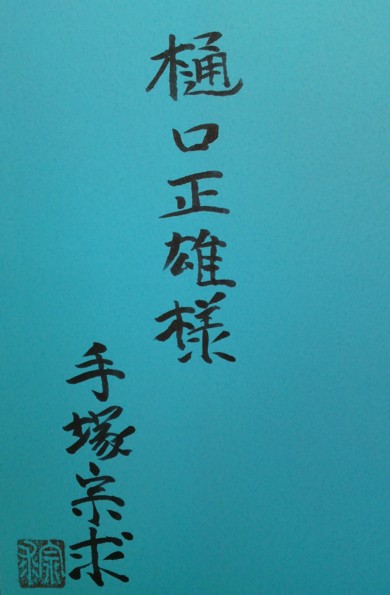 樋口正雄様
手塚宗求
宗求